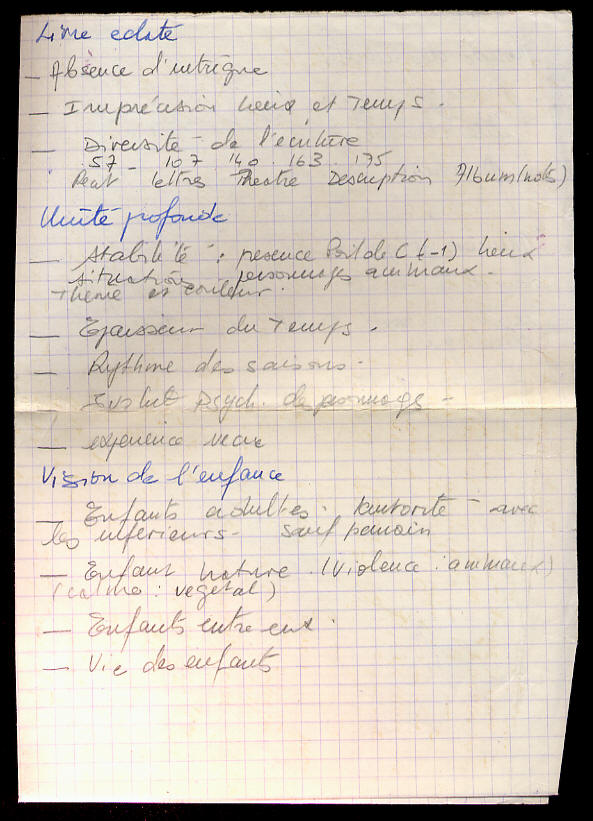 Livre eclaté
— Absence d'intrigue
— Imprécision lieux et Temps.
— Diversité de l'écriture
57 - 107 . 140 . 163 . 175
Récit lettres Théatre Description Album (nots)
Unité profonde
— Stabilité : presence Poil de C (-1) lieux
situation - personnages animaux.
Thème et couleur.
— Epaisseur du Temps.
— Rythme des saisons.
— Psych. de personnage -
— experience vecue
Vision de l'enfance
— Enfants adultes. autorité - avec
les inferieurs - sauf parrain
— Enfant nature. (Violence : animaux)
(calme : vegetal)
— Enfants entre eux.
— Vie des enfants